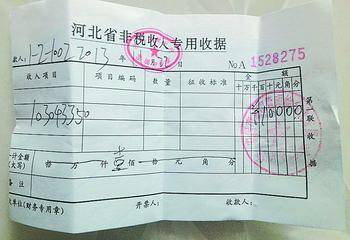 河北省非税收入专用收据
款人：1-2-1002 2013 年
No A 1528275
收入项目 项目编码 数量 征收标准 金额
十万千百十元角分
103043350
￥10000
第一联收据
计金额（大写） 拾 万 仟 壹 佰 拾 元 角 分
备注
单位(财务专用章) 开票人： 收款人：